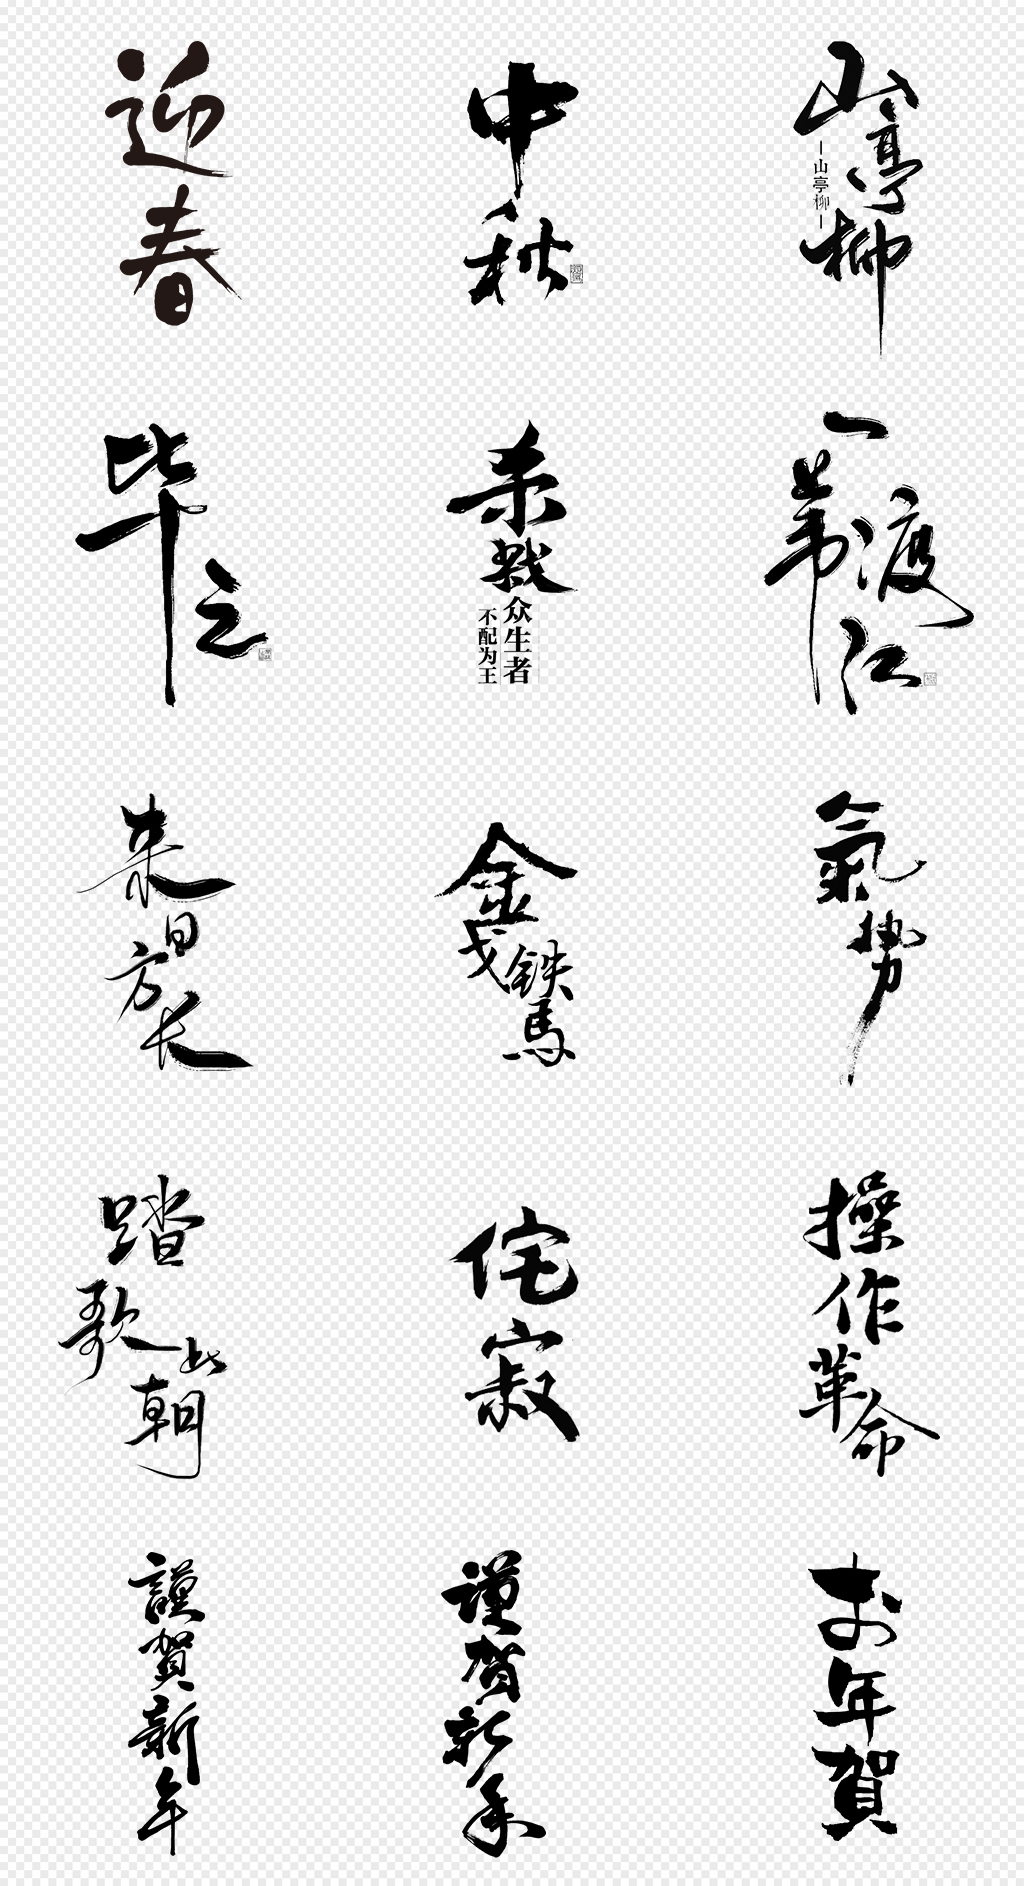 迎春
中秋
山亭柳
山亭柳
毕云
杀戮
众生者
不配为王
一苇渡江
来日方长
金戈鐵馬
氣势
踏歌此朝
侘寂
操作革命
謹賀新年
谨贺新年
お年賀